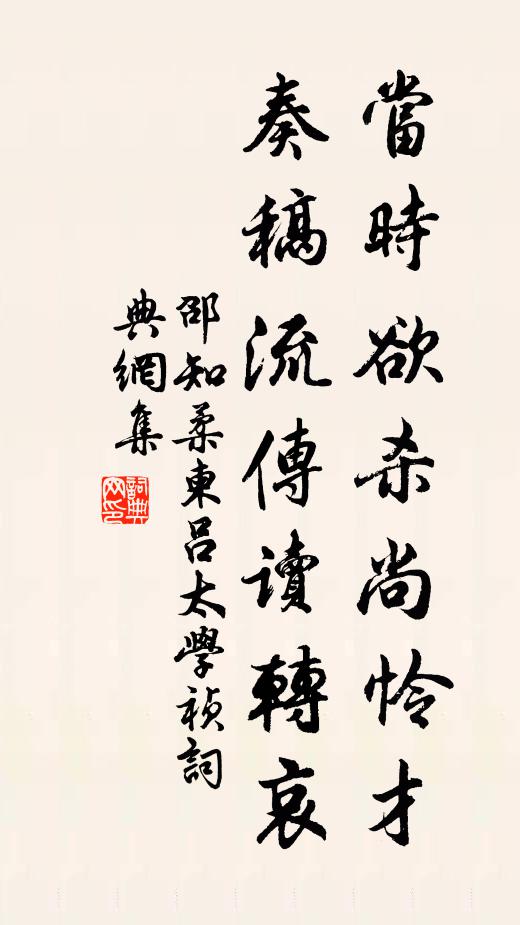 當時欲杀尚怜才
奏稿流傳讀轉哀
邵知柔東呂太學禎詞
典網集
詞典網印